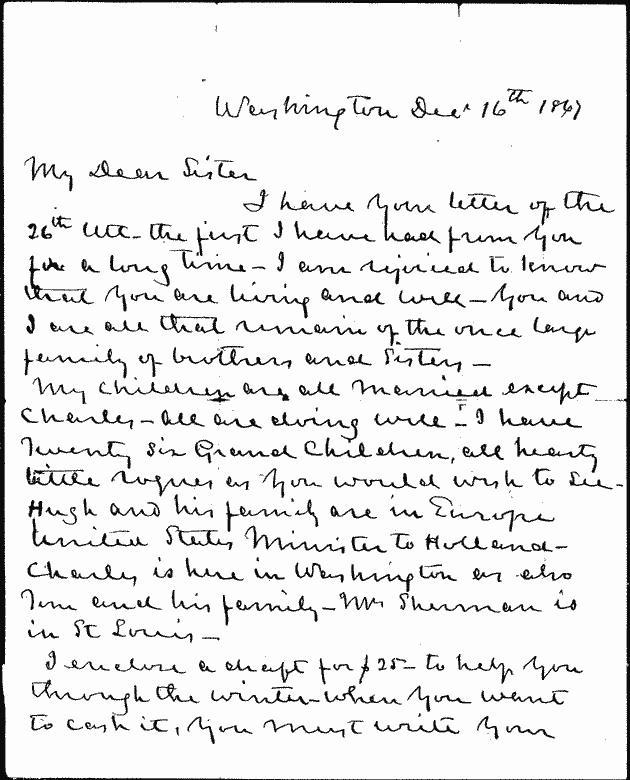 Washington Decr 16th 1867
My Dear Sister
I have your letter of the
26th Ult - the first I have had from you
for a long time - I am rejoiced to know
that you are living and well - you and
I are all that remain of the once large
family of brothers and Sisters -
My children are all married except
Charley - all are doing well - I have
Twenty Six Grand Children, all hearty
little rogues as you would wish to see -
Hugh and his family are in Europe
United States Minister to Holland -
Charley is here in Washington as also
Tom and his family - Mrs Sherman is
in St Louis -
I enclose a draft for $25 - to help you
through the winter - when you want
to cash it, you must write your